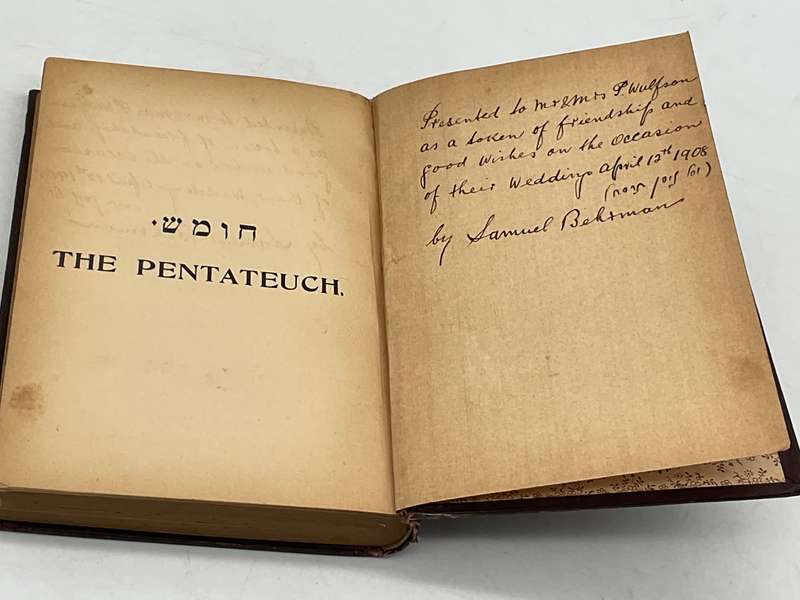 חומש.
THE PENTATEUCH.
Presented to Mr & Mrs P. Wulfson
as a token of friendship and
good wishes on the Occasion
of their Wedding April 12th 1908
(יא ניסן תרסח)
by Samuel Behrman